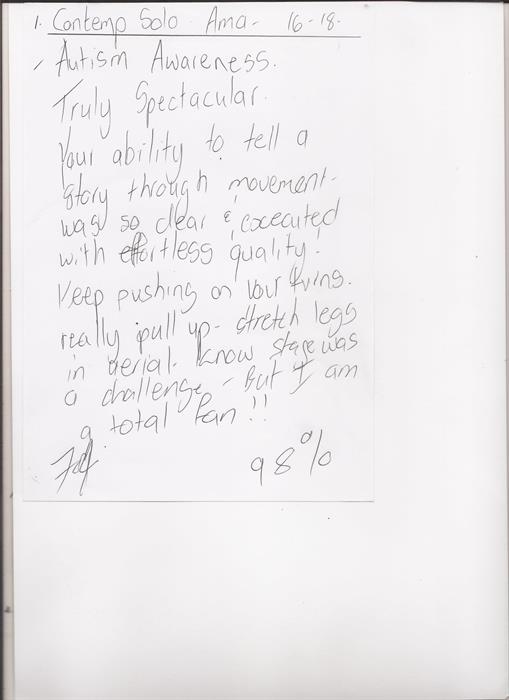 1. Contemp Solo Ama- 16-18.
Autism Awareness.
Truly Spectacular.
Your ability to tell a
story through movement-
was so clear & executed
with effortless quality!
Keep pushing on your turns.
really pull up- stretch legs
in aerial. Know stage was
a challenge - But I am
a total fan!!
98%